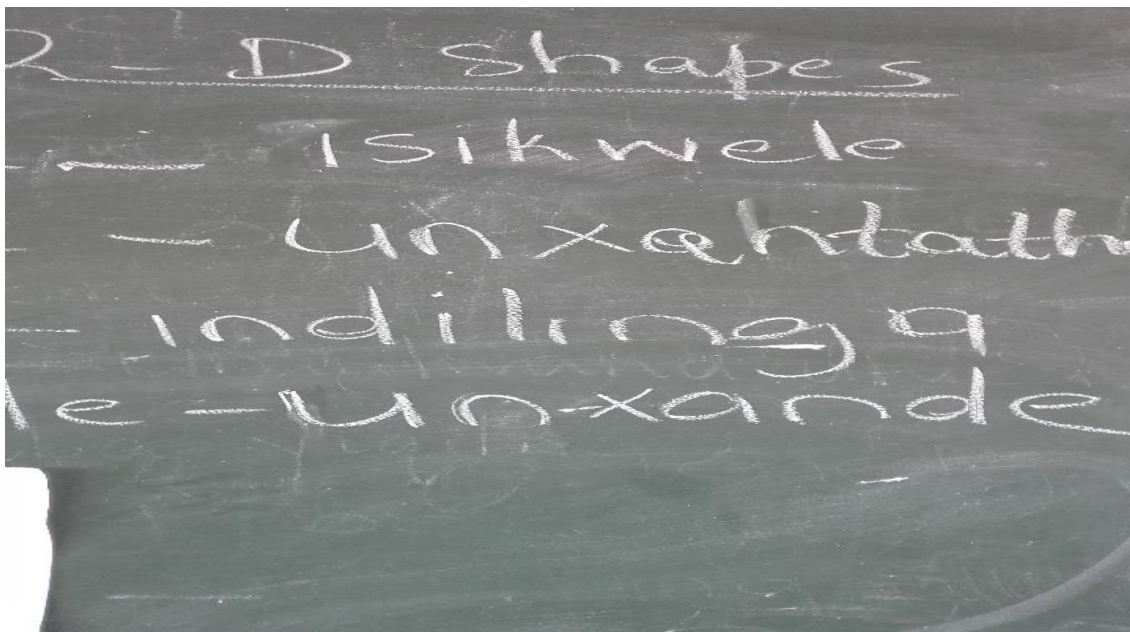 2-D Shapes
- isikwele
- unxantath
- indilinga
le - unxande